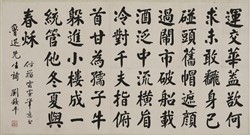 運交華蓋欲何
求未敢翻身已
碰頭舊帽遮顏
過鬧市船載
酒泛中流橫眉
冷對千夫指俯
首甘為孺子牛
躲進小樓成一
統管他冬夏與
春秌
魯迅先生詩